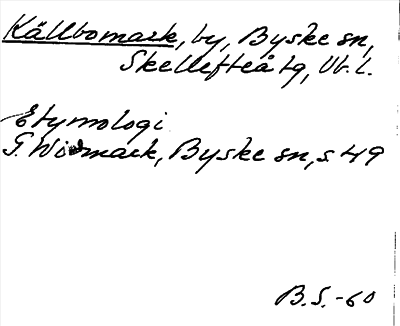 Källbomark, by, Byske sn,
Skellefteå tg, Vb. l.
Etymologi
G. Widmark, Byske sn, s. 49
B.S.-60